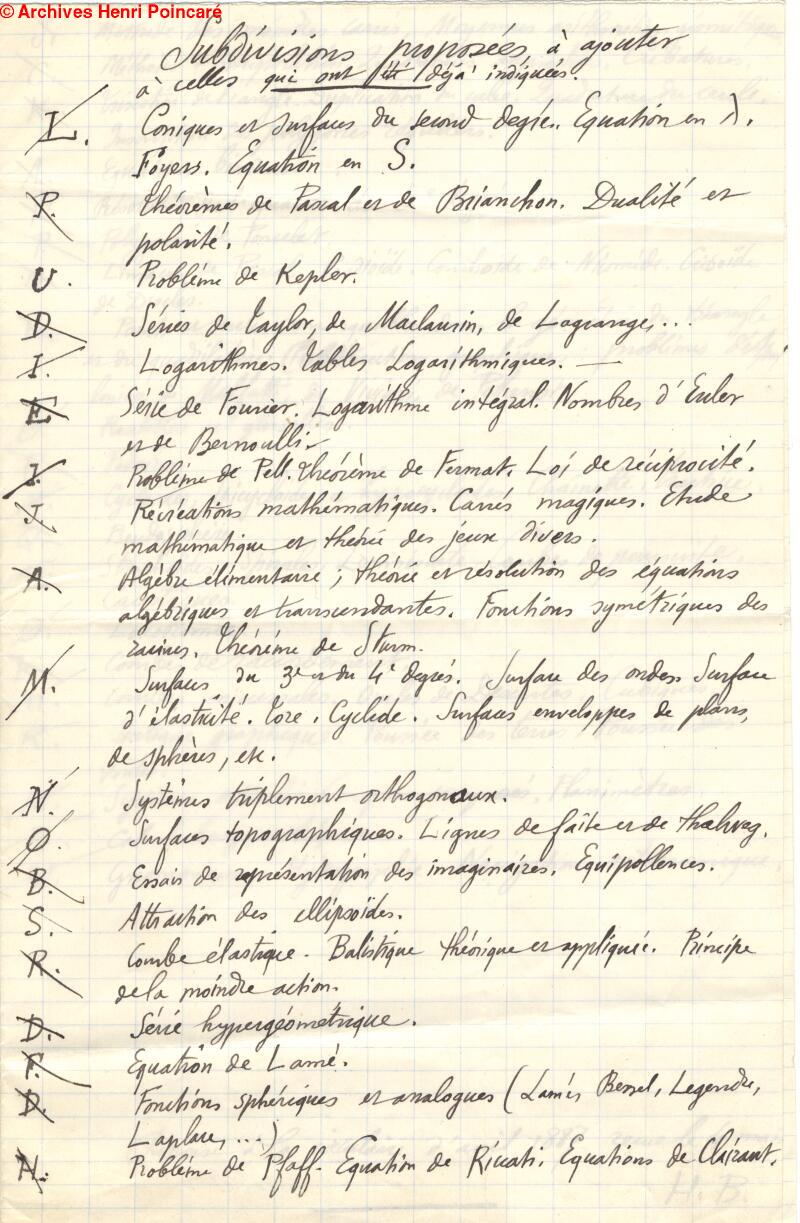 © Archives Henri Poincaré
Subdivisions proposées à ajouter
à celles qui ont été déjà indiquées.
L. Coniques et surfaces du second degré. Equation en λ.
Foyers. Equation en S.
P. Théorèmes de Pascal et de Brianchon. Dualité et
polarité.
U. Problème de Kepler.
D. Séries de Taylor, de Maclaurin, de Lagrange, ...
I. Logarithmes. Tables Logarithmiques. —
E. Série de Fourier. Logarithme intégral. Nombres d'Euler
et de Bernoulli.
I. Problème de Pell. Théorème de Fermat. Loi de réciprocité.
J. Récréations mathématiques. Carrés magiques. Etude
mathématique et théorie des jeux divers.
A. Algèbre élémentaire ; théorie et résolution des équations
algébriques et transcendantes. Fonctions symétriques des
racines. Théorème de Sturm.
M. Surfaces du 3e et du 4e degrés. Surface des ondes. Surface
d'élasticité. Tore. Cyclide. Surfaces enveloppes de plans,
de sphères, etc.
N. Systèmes triplement orthogonaux.
O. Surfaces topographiques. Lignes de faîte et de thalweg.
B. Essais de représentation des imaginaires. Equipollences.
S. Attraction des ellipsoïdes.
R. Courbe élastique. Balistique théorique et appliquée. Principe
de la moindre action.
D. Série hypergéométrique.
F. Equation de Lamé.
D. Fonctions sphériques et analogues (Lamé, Bessel, Legendre,
Laplace, ...)
H. Problème de Pfaff. Equation de Riccati. Equations de Clairaut.
H. B.